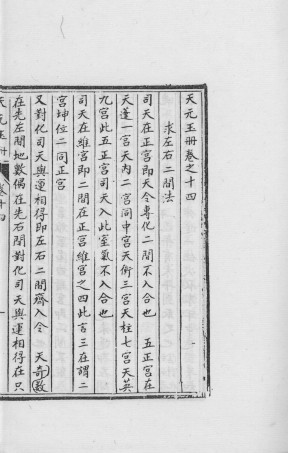 天元玉册卷之十四
求左右二間法
司天在正宮即天令專化二間不入合也 五正宮在
天蓬一宮天内二宮同中宮天衝三宮天柱七宮天英
九宮此五正宮司天入此室氣不入合也
司天在維宮即二間在正宮維宮之四此言三在謂二
宮坤位二同正宮
又對化司天與運相得即左右二間齊入令 天奇數
在先左間地數偶在先右間對化司天與運相得在只
天元玉册 卷十四